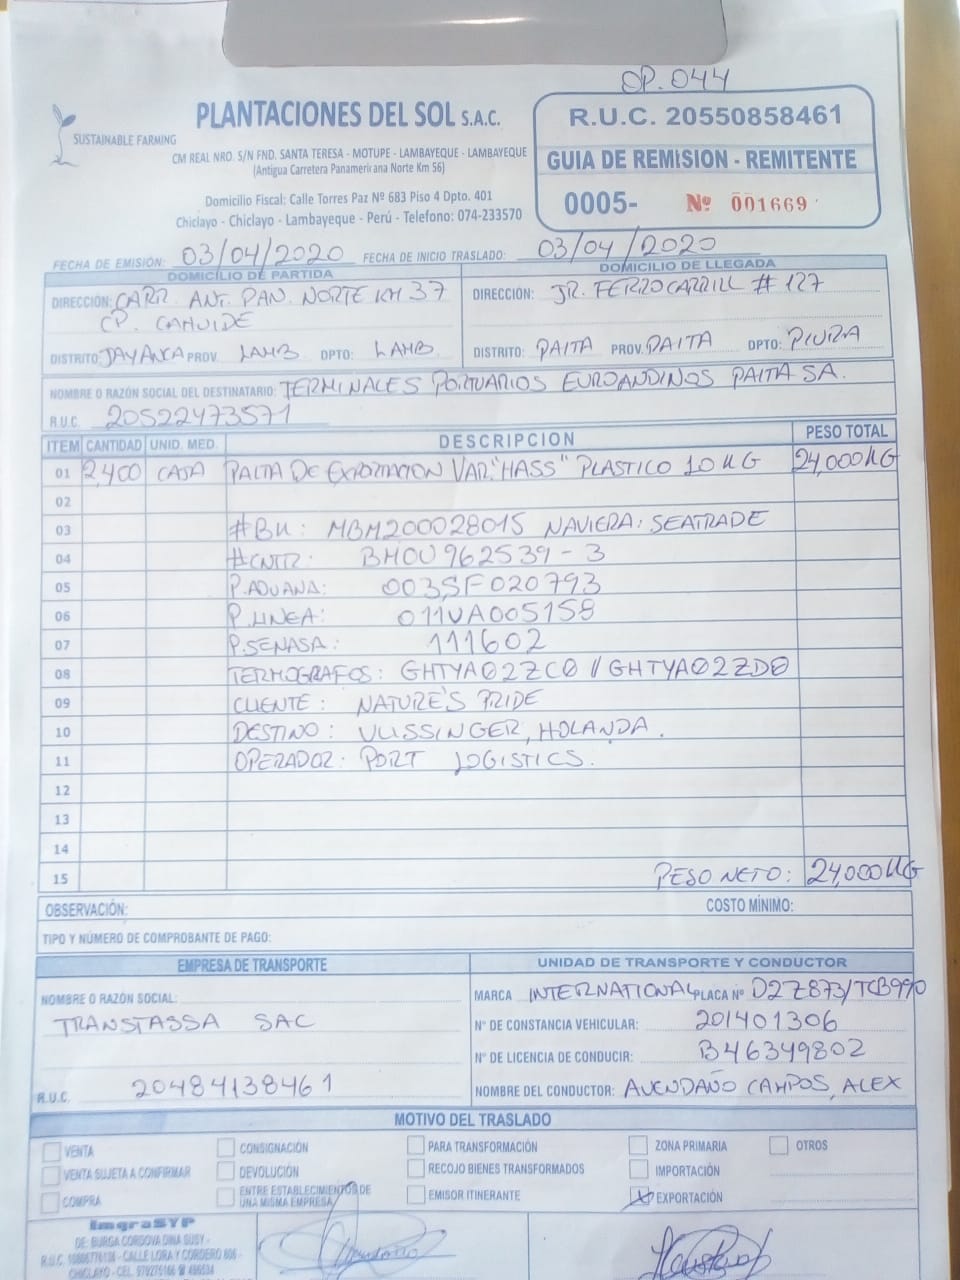 OP. 044
PLANTACIONES DEL SOL S.A.C.
SUSTAINABLE FARMING
CM REAL NRO. S/N FND. SANTA TERESA - MOTUPE - LAMBAYEQUE - LAMBAYEQUE
(Antigua Carretera Panamericana Norte Km 56)
Domicilio Fiscal: Calle Torres Paz Nº 683 Piso 4 Dpto. 401
Chiclayo - Chiclayo - Lambayeque - Perú - Telefono: 074-233570
R.U.C. 20550858461
GUIA DE REMISION - REMITENTE
0005- Nº 001669
FECHA DE EMISIÓN: 03/04/2020 FECHA DE INICIO TRASLADO: 03/04/2020
DOMICILIO DE PARTIDA
DIRECCIÓN: CARR. ANT. PAN. NORTE KM 37
CP. CAHUIDE
DISTRITO: JAYANCA PROV. LAMB DPTO: LAMB.
DOMICILIO DE LLEGADA
DIRECCIÓN: JR. FERROCARRILL # 127
DISTRITO: PAITA PROV. PAITA DPTO: PIURA
NOMBRE O RAZÓN SOCIAL DEL DESTINATARIO: TERMINALES PORTUARIOS EUROANDINOS PAITA SA.
R.U.C. 20522473571
ITEM CANTIDAD UNID. MED. DESCRIPCION PESO TOTAL
01 2,400 CAJA PALTA DE EXPORTACION VAR. "HASS" PLASTICO 10 KG 24,000KG
02
03 #BK: MBM200028015 NAVIERA: SEATRADE
04 #CNTR: BHOU 962539-3
05 P.ADUANA: 003SF020793
06 P.LINEA: 011VA005158
07 P.SENASA: 111602
08 TERMOGRAFOS: GHTYA02ZC0 // GHTYA02ZD0
09 CLIENTE: NATURE'S PRIDE
10 DESTINO: VLISSINGER, HOLANDA.
11 OPERADOR: PORT LOGISTICS.
12
13
14
15 PESO NETO: 24,000KG
OBSERVACIÓN: COSTO MÍNIMO:
TIPO Y NÚMERO DE COMPROBANTE DE PAGO:
EMPRESA DE TRANSPORTE
NOMBRE O RAZÓN SOCIAL:
TRANSTASSA SAC
R.U.C. 20484138461
UNIDAD DE TRANSPORTE Y CONDUCTOR
MARCA INTERNATIONAL PLACA Nº D2Z873/TCB990
Nº DE CONSTANCIA VEHICULAR: 201401306
Nº DE LICENCIA DE CONDUCIR: B46349802
NOMBRE DEL CONDUCTOR: AVENDAÑO CAMPOS, ALEX
MOTIVO DEL TRASLADO
VENTA CONSIGNACIÓN PARA TRANSFORMACIÓN ZONA PRIMARIA OTROS
VENTA SUJETA A CONFIRMAR DEVOLUCIÓN RECOJO BIENES TRANSFORMADOS IMPORTACIÓN
COMPRA ENTRE ESTABLECIMIENTOS DE UNA MISMA EMPRESA EMISOR ITINERANTE X EXPORTACIÓN
ImgraSYP
DE: BURGA CORDOVA DINA SUSY -
CALLE LORA Y CORDERO 606 -
CHICLAYO - CEL. 979275166